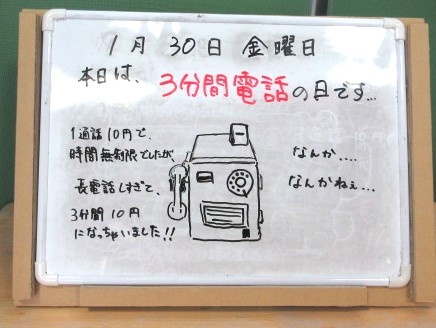 1月30日 金曜日
本日は、3分間電話の日です…
1通話10円で、
時間無制限でしたが
長電話しすぎて、
3分間10円
になっちゃいました!!
なんか….
なんかねぇ…